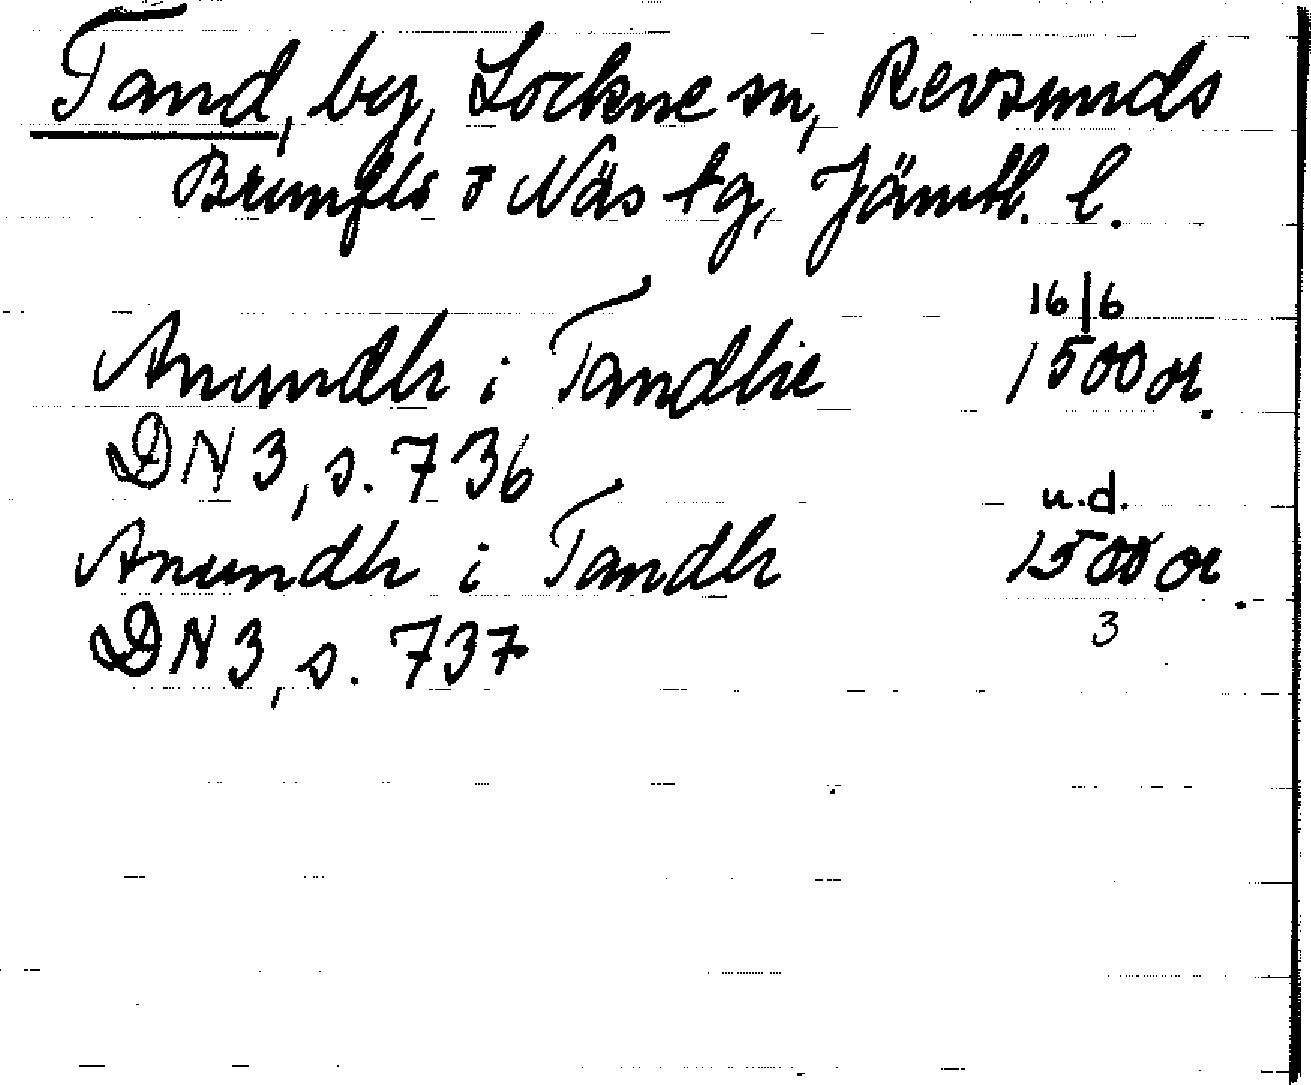 Tand, by, Lockne sn, Revsunds
Brunflo o Näs tg, Jämtl. l.
16/6
Anundh i Tandhie 1500 or.
DN 3, s. 736
u.d.
Anundh i Tandh 1500 or.
3
DN 3, s. 737